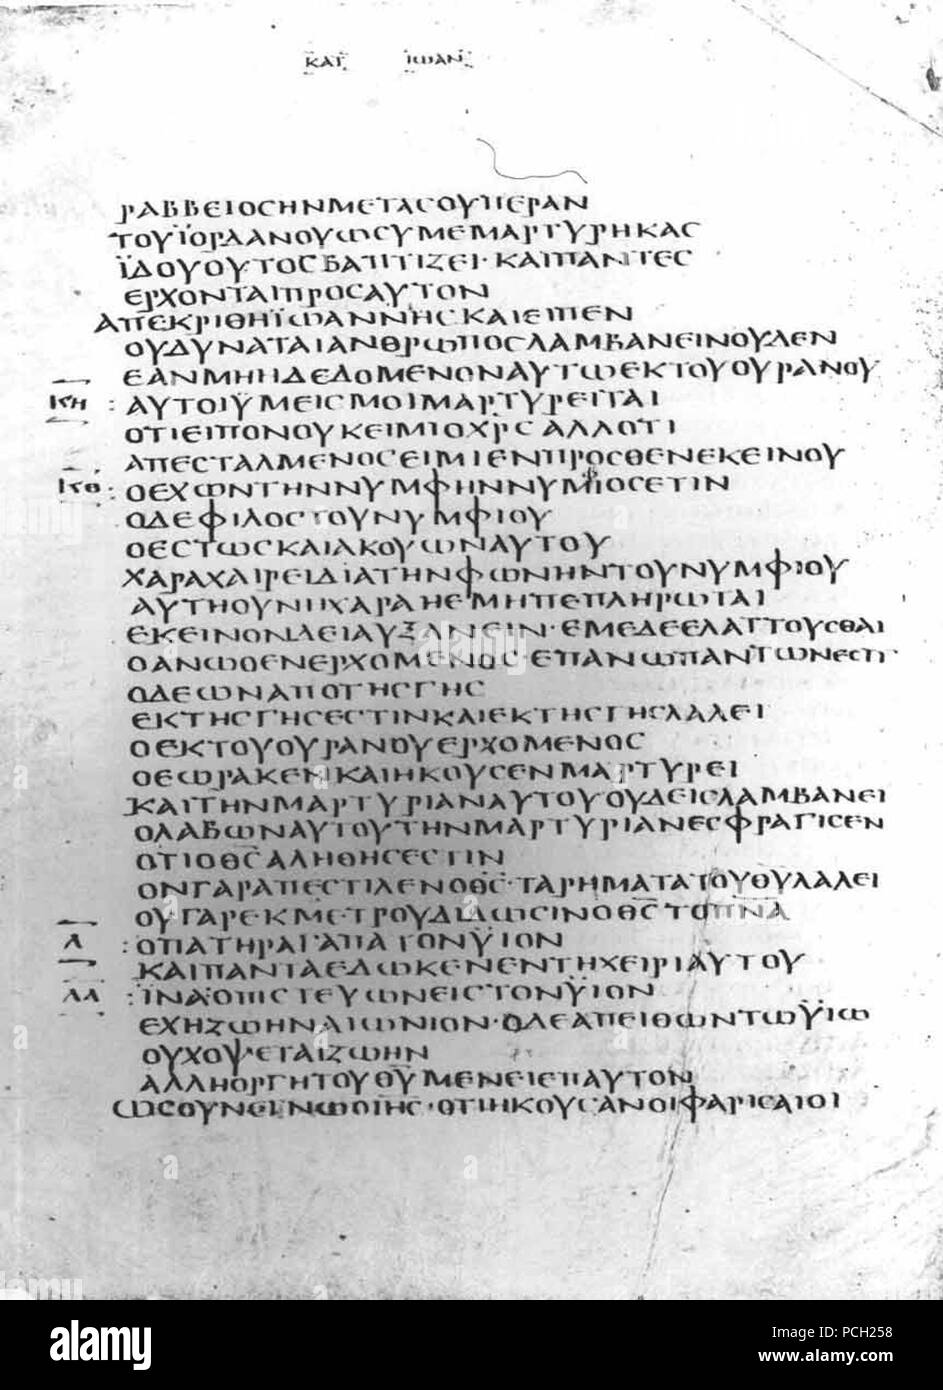 ΚΑΤ ΙΩΑΝ
ΡΑΒΒΕΙΟΣΗΝΜΕΤΑΣΟΥΠΕΡΑΝ
ΤΟΥΪΟΡΔΑΝΟΥΩΣΥΜΕΜΑΡΤΥΡΗΚΑΣ
ΪΔΟΥΟΥΤΟΣΒΑΠΤΙΖΕΙ·ΚΑΙΠΑΝΤΕΣ
ΕΡΧΟΝΤΑΙΠΡΟΣΑΥΤΟΝ
ΑΠΕΚΡΙΘΗΪΩΑΝΝΗΣΚΑΙΕΙΠΕΝ
ΟΥΔΥΝΑΤΑΙΑΝΘΡΩΠΟΣΛΑΜΒΑΝΕΙΝΟΥΔΕΝ
ΕΑΝΜΗΗΔΕΔΟΜΕΝΟΝΑΥΤΩΕΚΤΟΥΟΥΡΑΝΟΥ
ΚΗ : ΑΥΤΟΙΫΜΕΙΣΜΟΙΜΑΡΤΥΡΕΙΤΑΙ
ΟΤΙΕΙΠΟΝΟΥΚΕΙΜΙΟΧΡΣΑΛΛΟΤΙ
ΑΠΕΣΤΑΛΜΕΝΟΣΕΙΜΙΕΝΠΡΟΣΘΕΝΕΚΕΙΝΟΥ
ΚΘ : ΟΕΧΩΝΤΗΝΝΥΜΦΗΝΝΥΜΙΟΣΕΤΙΝ
ΩΔΕΦΙΛΟΣΤΟΥΝΥΜΦΙΟΥ
ΟΕΣΤΩΣΚΑΙΑΚΟΥΩΝΑΥΤΟΥ
ΧΑΡΑΧΑΙΡΕΙΔΙΑΤΗΝΦΩΝΗΝΤΟΥΝΥΜΦΙΟΥ
ΑΥΤΗΟΥΝΗΧΑΡΑΗΕΜΗΠΕΠΛΗΡΩΤΑΙ
ΕΚΕΙΝΟΝΔΕΙΑΥΞΑΝΕΙΝ·ΕΜΕΔΕΕΛΑΤΤΟΥΣΘΑΙ
ΟΑΝΩΘΕΝΕΡΧΟΜΕΝΟΣΕΠΑΝΩΠΑΝΤΩΝΕΣΤΙ
ΩΔΕΩΝΑΠΟΤΗΣΓΗΣ
ΕΚΤΗΣΓΗΣΕΣΤΙΝΚΑΙΕΚΤΗΣΓΗΣΛΑΛΕΙ
ΟΕΚΤΟΥΟΥΡΑΝΟΥΕΡΧΟΜΕΝΟΣ
ΟΕΩΡΑΚΕΝΚΑΙΗΚΟΥΣΕΝΜΑΡΤΥΡΕΙ
ΚΑΙΤΗΝΜΑΡΤΥΡΙΑΝΑΥΤΟΥΟΥΔΕΙΣΛΑΜΒΑΝΕΙ
ΟΛΑΒΩΝΑΥΤΟΥΤΗΝΜΑΡΤΥΡΙΑΝΕΣΦΡΑΓΙΣΕΝ
ΟΤΙΟΘΣΑΛΗΘΗΣΕΣΤΙΝ
ΟΝΓΑΡΑΠΕΣΤΙΛΕΝΟΘΣ·ΤΑΡΗΜΑΤΑΤΟΥΘΥΛΑΛΕΙ
ΟΥΓΑΡΕΚΜΕΤΡΟΥΔΙΔΩΣΙΝΟΘΣΤΟΠΝΑ
Λ : ΟΠΑΤΗΡΑΓΑΠΑΤΟΝΫΙΟΝ
ΚΑΙΠΑΝΤΑΕΔΩΚΕΝΕΝΤΗΧΕΙΡΙΑΥΤΟΥ
ΛΑ : ΪΝΑΟΠΙΣΤΕΥΩΝΕΙΣΤΟΝΫΙΟΝ
ΕΧΗΖΩΗΝΑΙΩΝΙΟΝ·ΟΔΕΑΠΕΙΘΩΝΤΩΫΙΩ
ΟΥΧΟΨΕΤΑΙΖΩΗΝ
ΑΛΛΗΟΡΓΗΤΟΥΘΥΜΕΝΕΙΕΠΑΥΤΟΝ
ΩΣΟΥΝΕΓΝΩΟΙΗΣ·ΟΤΙΗΚΟΥΣΑΝΟΙΦΑΡΙΣΑΙΟΙ
alamy
alamy
Image ID: PCH258
www.alamy.com